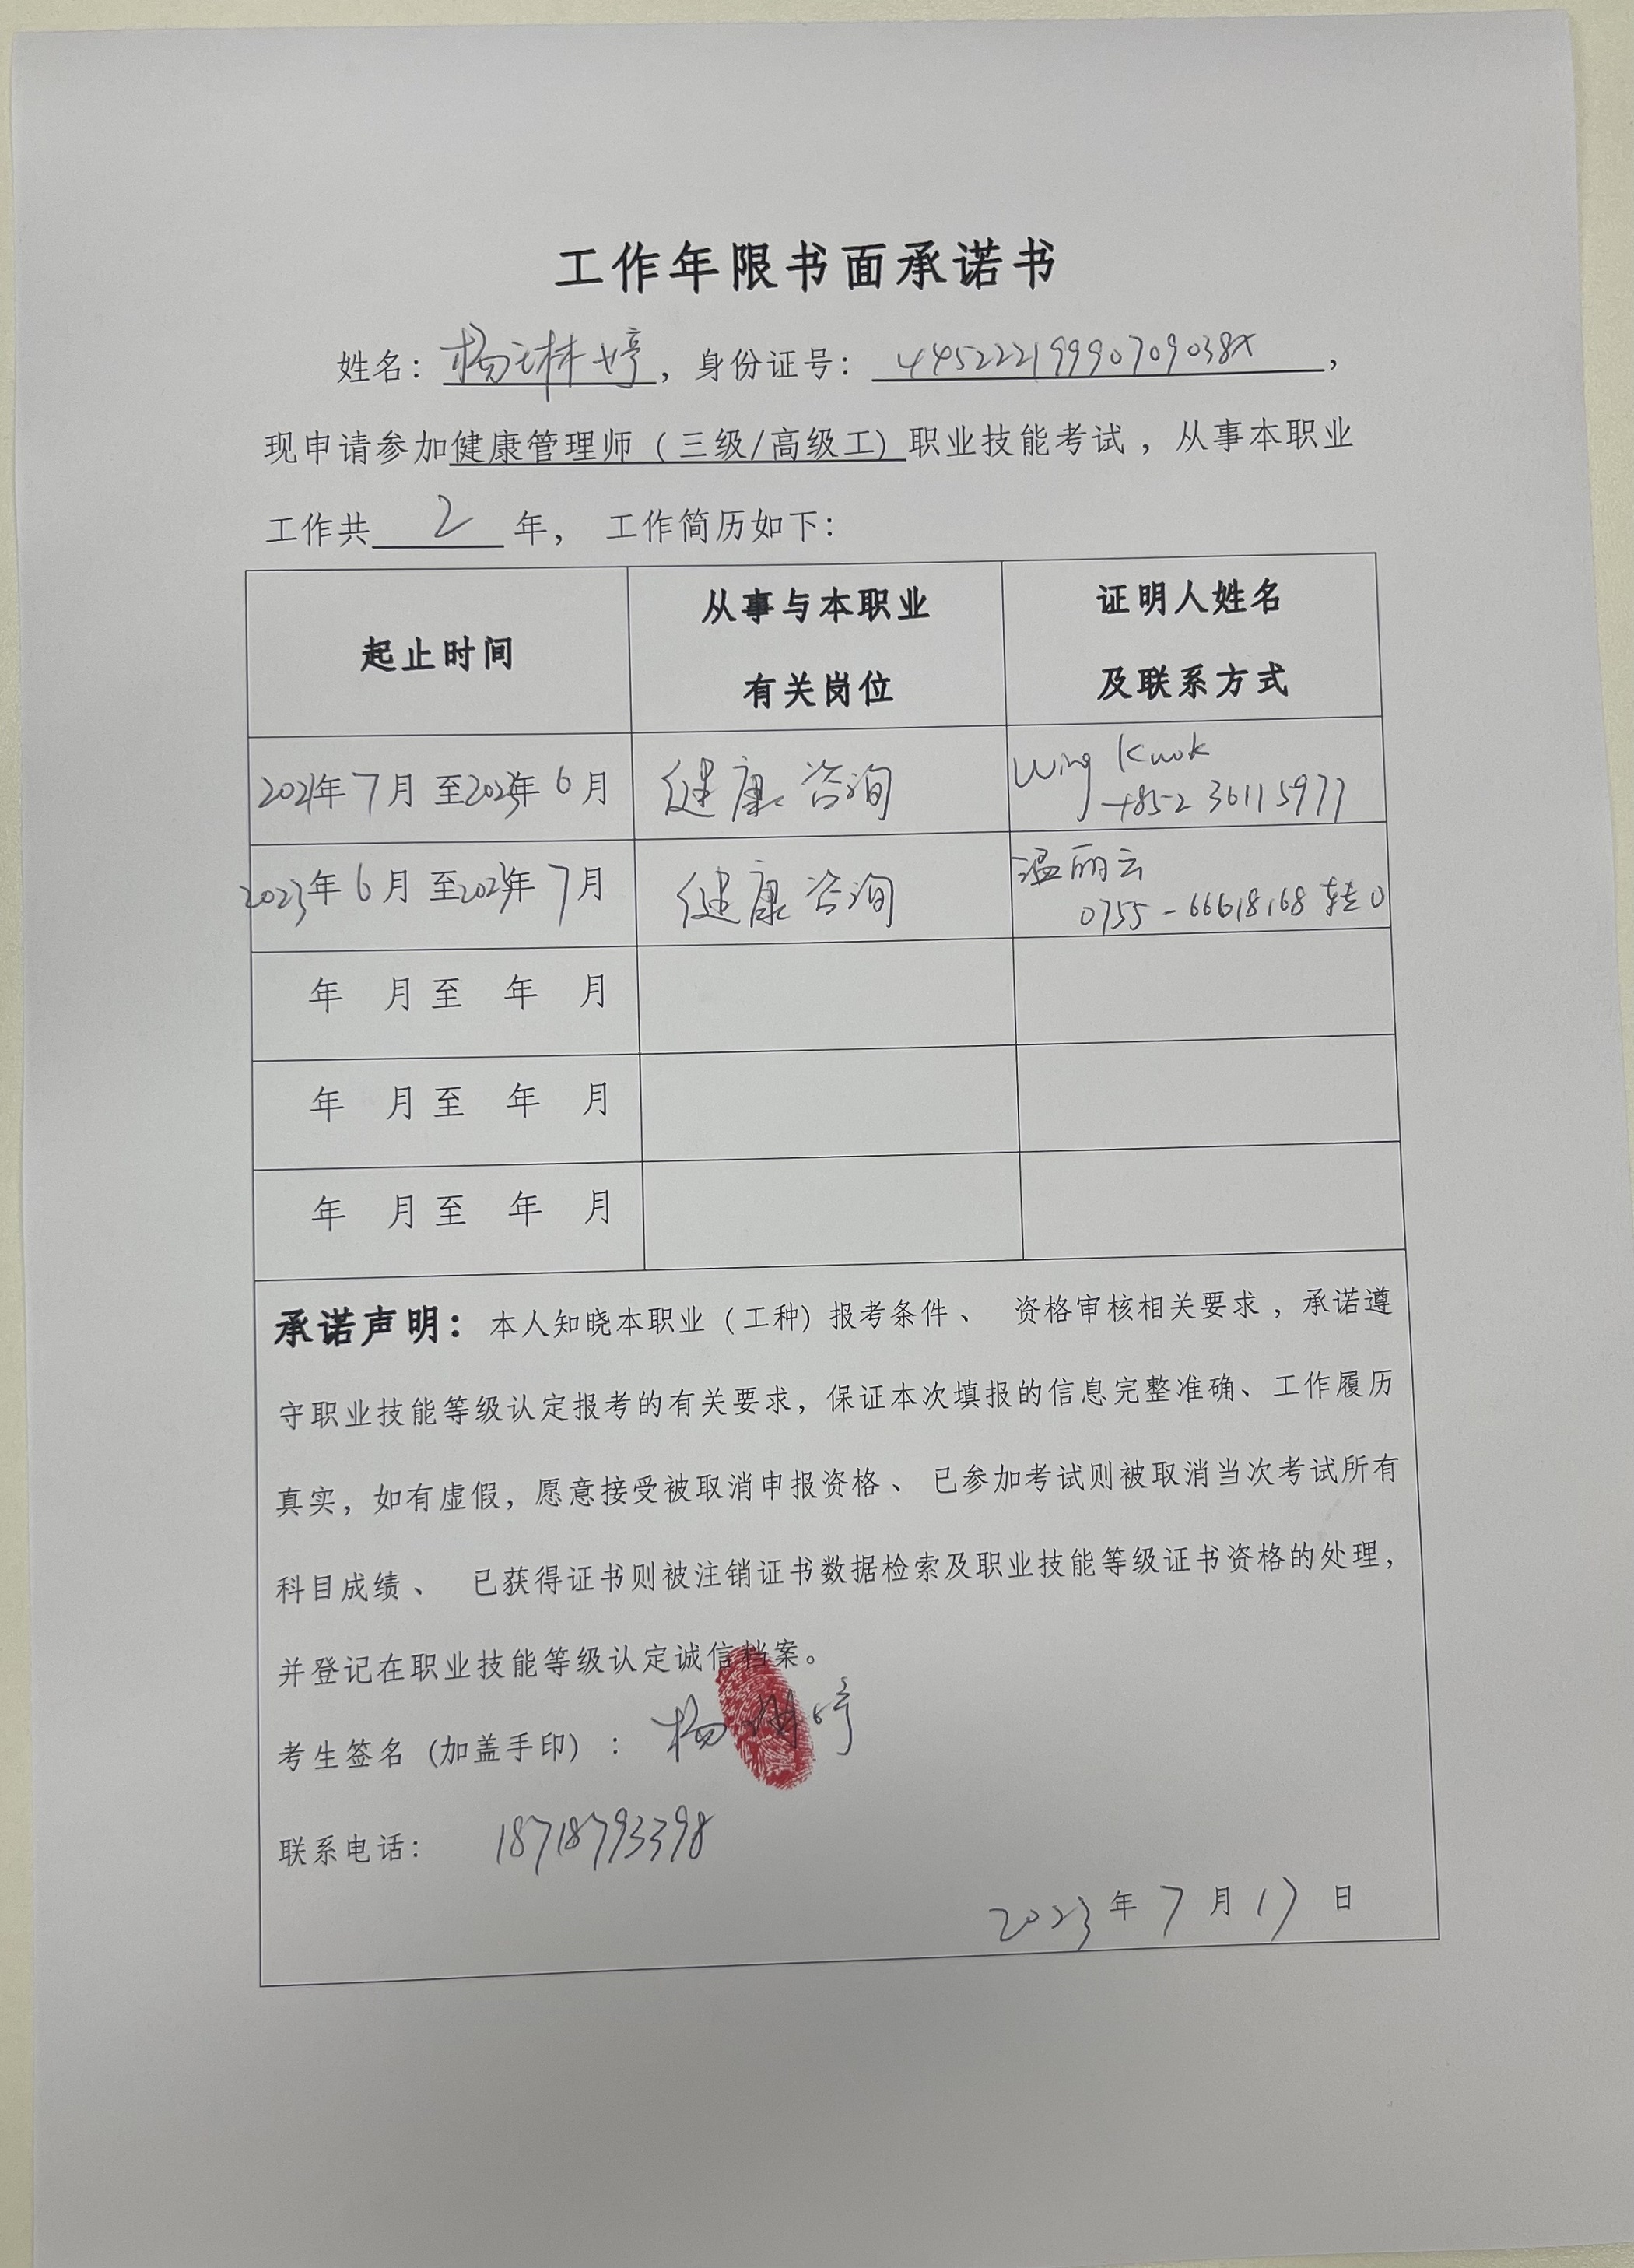 工作年限书面承诺书
姓名：杨琳婷，身份证号：44522219990709038X，
现申请参加健康管理师（三级/高级工）职业技能考试，从事本职业
工作共 2 年， 工作简历如下：
起止时间
从事与本职业
有关岗位
证明人姓名
及联系方式
2021年7月至2023年6月
健康咨询
Wing Kwok
+852 36115977
2023年6月至2023年7月
健康咨询
温丽云
0755-66618168转0
年 月至 年 月
年 月至 年 月
年 月至 年 月
承诺声明：本人知晓本职业（工种）报考条件、 资格审核相关要求，承诺遵
守职业技能等级认定报考的有关要求，保证本次填报的信息完整准确、工作履历
真实，如有虚假，愿意接受被取消申报资格、 已参加考试则被取消当次考试所有
科目成绩、 已获得证书则被注销证书数据检索及职业技能等级证书资格的处理，
并登记在职业技能等级认定诚信档案。
考生签名（加盖手印）：杨琳婷
联系电话： 18718793398
2023年7月17日